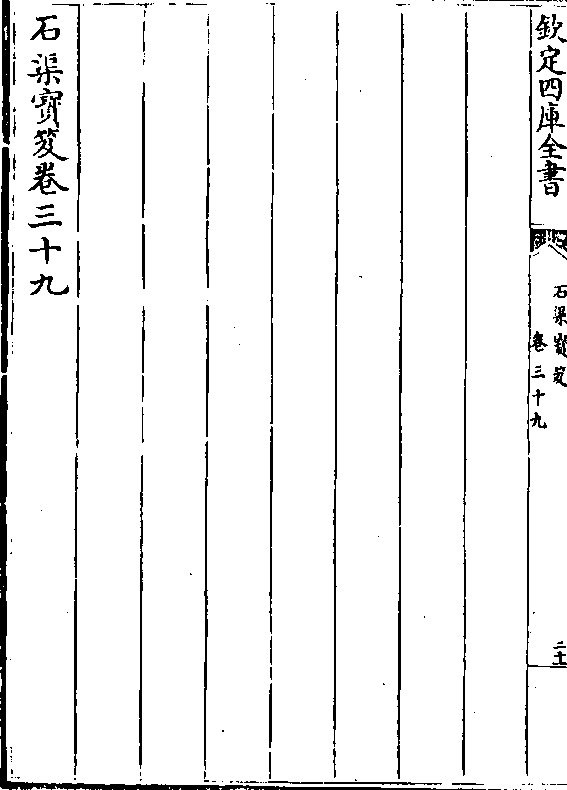 欽定四庫全書
石渠寳笈
卷三十九
二十
石渠寳笈卷三十九